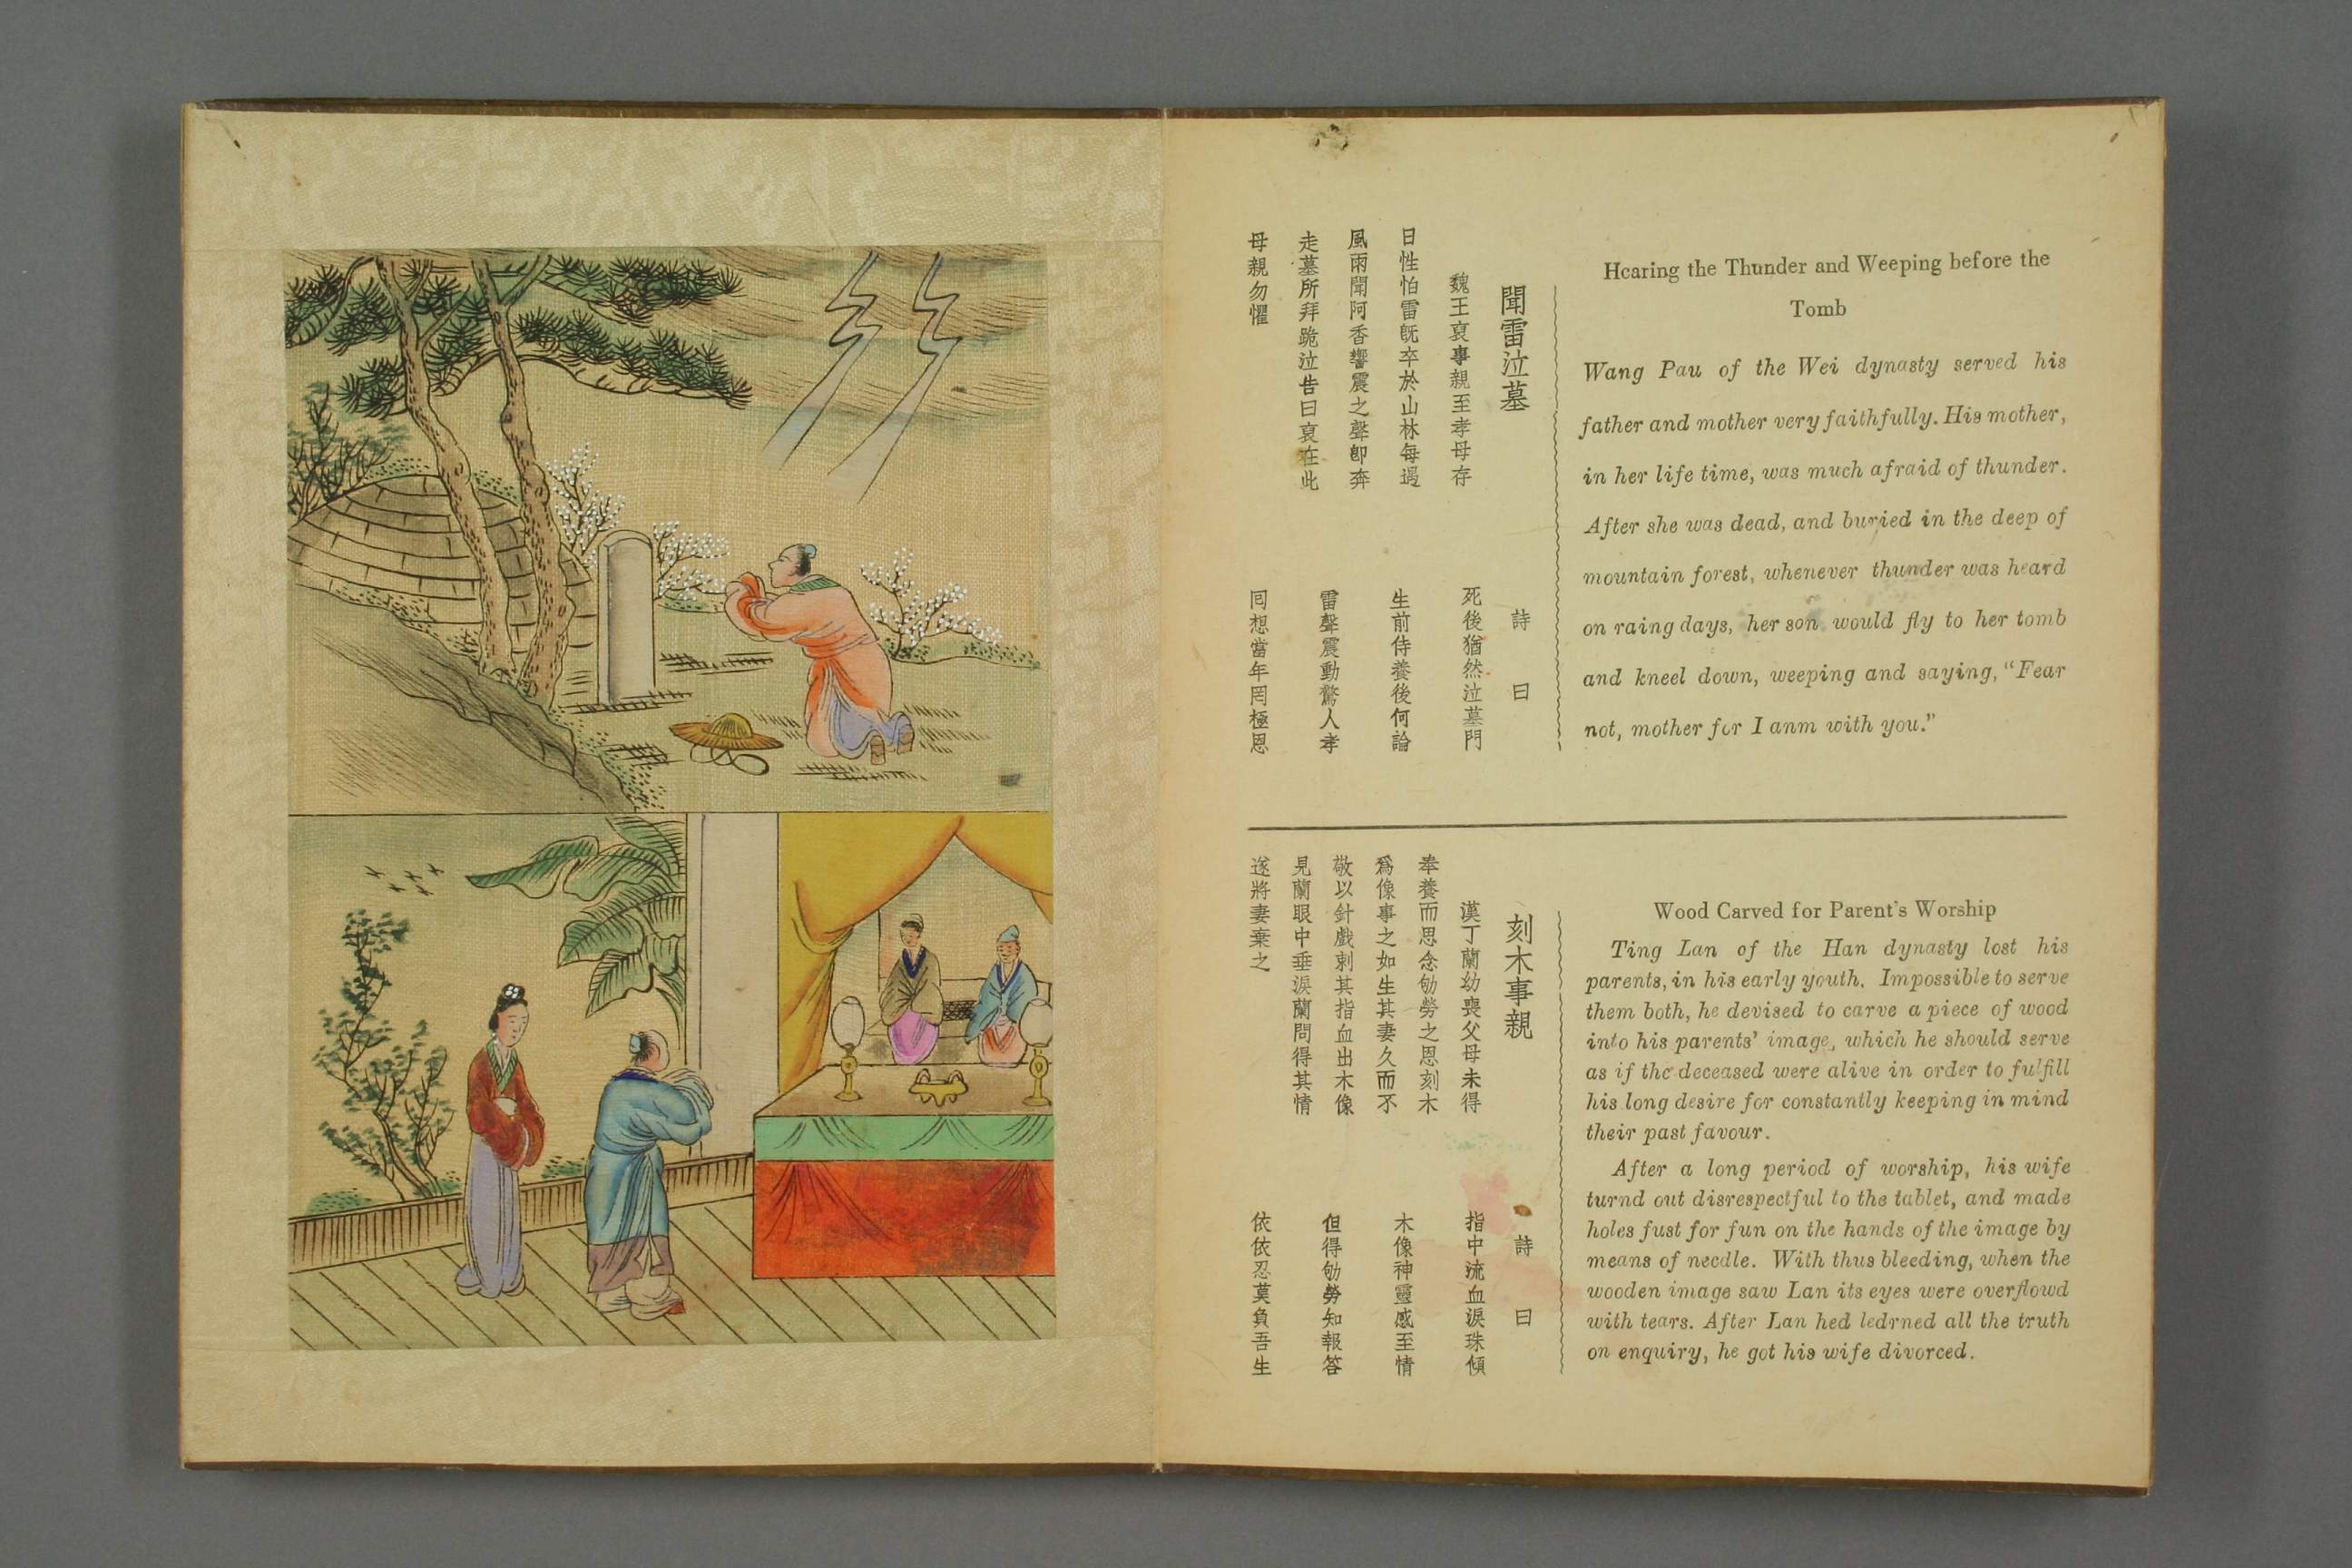 Hearing the Thunder and Weeping before the
Tomb
Wang Pau of the Wei dynasty served his
father and mother very faithfully. His mother,
in her life time, was much afraid of thunder.
After she was dead, and buried in the deep of
mountain forest, whenever thunder was heard
on raing days, her son would fly to her tomb
and kneel down, weeping and saying, "Fear
not, mother for I anm with you."
聞雷泣墓
魏王裒事親至孝母存
日性怕雷既卒於山林每遇
風雨聞阿香響震之聲卽奔
走墓所拜跪泣告曰裒在此
母親勿懼
詩曰
死後猶然泣墓門
生前侍養後何論
雷聲震動驚人孝
囘想當年罔極恩
Wood Carved for Parent's Worship
Ting Lan of the Han dynasty lost his
parents, in his early youth. Impossible to serve
them both, he devised to carve a piece of wood
into his parents' image, which he should serve
as if the deceased were alive in order to fulfill
his long desire for constantly keeping in mind
their past favour.
After a long period of worship, his wife
turnd out disrespectful to the tablet, and made
holes fust for fun on the hands of the image by
means of needle. With thus bleeding, when the
wooden image saw Lan its eyes were overflowd
with tears. After Lan hed ledrned all the truth
on enquiry, he got his wife divorced.
刻木事親
漢丁蘭幼喪父母未得
奉養而思念劬勞之恩刻木
爲像事之如生其妻久而不
敬以針戲刺其指血出木像
見蘭眼中垂淚蘭問得其情
遂將妻棄之
詩曰
指中流血淚珠傾
木像神靈感至情
但得劬勞知報答
依依忍莫負吾生